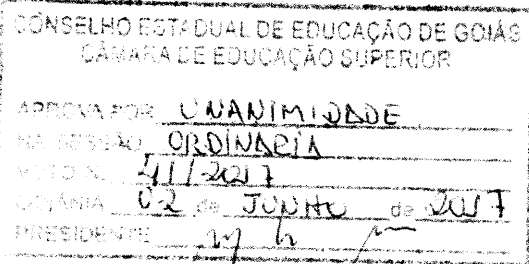 CONSELHO ESTADUAL DE EDUCAÇÃO DE GOIÁS
CÂMARA DE EDUCAÇÃO SUPERIOR
APROVA POR UNANIMIDADE
NA SESSÃO ORDINARIA
VOTO N. 41/2017
GOIÂNIA 02 de JUNHO de 2017
PRESIDENTE